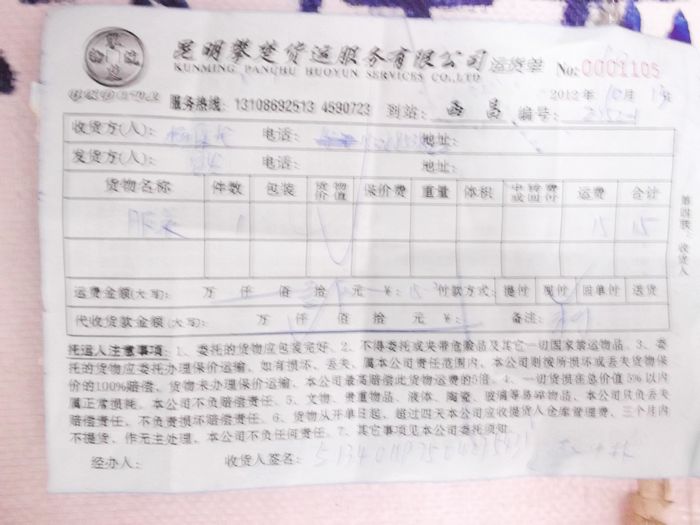 昆明攀楚货运服务有限公司 运货单 No:0001105
KUNMING PANCHU HUOYUN SERVICES CO.,LTD
2012年10月 日
服务热线: 13108692513 4590723 到站: 西昌 编号:
收货方(人): 电话: 地址:
发货方(人): 电话: 地址:
货物名称 件数 包装 货物价值 保价费 重量 体积 运费 合计
服装 1 15 15
第四联:收货人
运费金额(大写): 万 仟 佰 拾 元 ¥: 付款方式: 提付 现付 回单付 送货
代收货款金额(大写): 万 仟 佰 拾 元 ¥: 备注:
托运人注意事项: 1、委托的货物应包装完好。2、不得委托或夹带危险品及其它一切国家禁运物品。3、委
托的货物应委托办理保价运输。如有损坏、丢失、属本公司责任范围内、本公司则按所损坏或丢失货物保
价的100%赔偿。货物未办理保价运输、本公司最高赔偿此货物运费的5倍。4、一切货损在总价值5%以内
属正常损耗。本公司不负责任。5、文物、贵重物品、液体、陶瓷、玻璃等易碎物品、本公司只负丢失
赔偿责任、不负责损坏赔偿责任。6、货物从开单日起、超过四天本公司应收提货人仓库管理费、三个月内
不提货、作无主处理、本公司不负任何责任。7、其它事项见本公司委托须知。
经办人: 收货人签名: